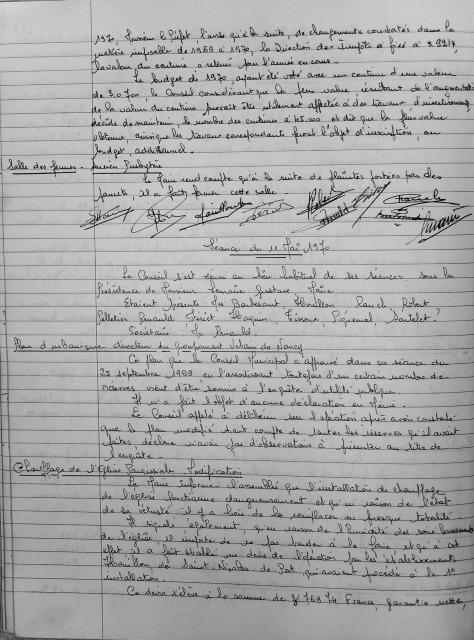 1970, Monsieur le Préfet, l'avise qu'à la suite, de changements constatés dans la
matière imposable de 1969 à 1970, la Direction des Impôts a fixé à 3.9214,
la valeur du centime à retenir pour l'année en cours.
Le budget de 1970, ayant été voté avec un centime d'une valeur
de 3.0700, le Conseil considérant que la plus value, résultant de l'augmentation
de la valeur du centime pourrait être utilement affectée à des travaux d'investissement,
décide de maintenir, le nombre des centimes à 45.000 et dit que la plus value
obtenue, ainsi que les travaux correspondants feront l'objet d'inscription, au
budget, additionnel.
Salle des jeunes. Ancien Presbytère
Le Maire rend compte qu'à la suite de plaintes portées par des
parents, il a fait fermer cette salle.
Séance du 11 Mai 1970
Le Conseil s'est réuni au lieu habituel de ses séances, sous la
Présidence de Monsieur Lemaire Gustave Maire
Etaient présents Barbesant, Thouillon Rauch, Robert
Pelletier Renauld,
Secrétaire Mr Renauld.
Plan d'urbanisme directeur du Groupement Urbain de Nancy
Ce plan que le Conseil Municipal a approuvé dans sa séance du
25 septembre 1969 en l'assortissant toutefois d'un certain nombre de
réserves vient d'être soumis à l'enquête d'utilité publique.
Il n'a fait l'objet d'aucune déclaration en Mairie.
Le Conseil appelé à délibérer sur l'opération après avoir constaté
que le plan modifié tient compte de toutes les réserves qu'il avait
faites déclare n'avoir pas d'observations à présenter au titre de
l'enquête.
Chauffage de l'Eglise Paroissiale Modification
Le Maire informe l'assemblée que l'installation de chauffage
de l'église fonctionne dangereusement et qu'en raison de l'état
de sa vétusté il y a lieu de la remplacer en presque totalité
Il signale également, qu'en raison de l'humidité des sous bassements
de l'église, il importe de ne pas tarder à le faire et qu'à cet
effet il a fait établir un devis de l'opération par les établissements
Thouillon de Saint Nicolas de Port, qui avaient procédé à la 1ère
installation.
Ce devis s'élève à la somme de 9 768,74 Francs, garantie nette,